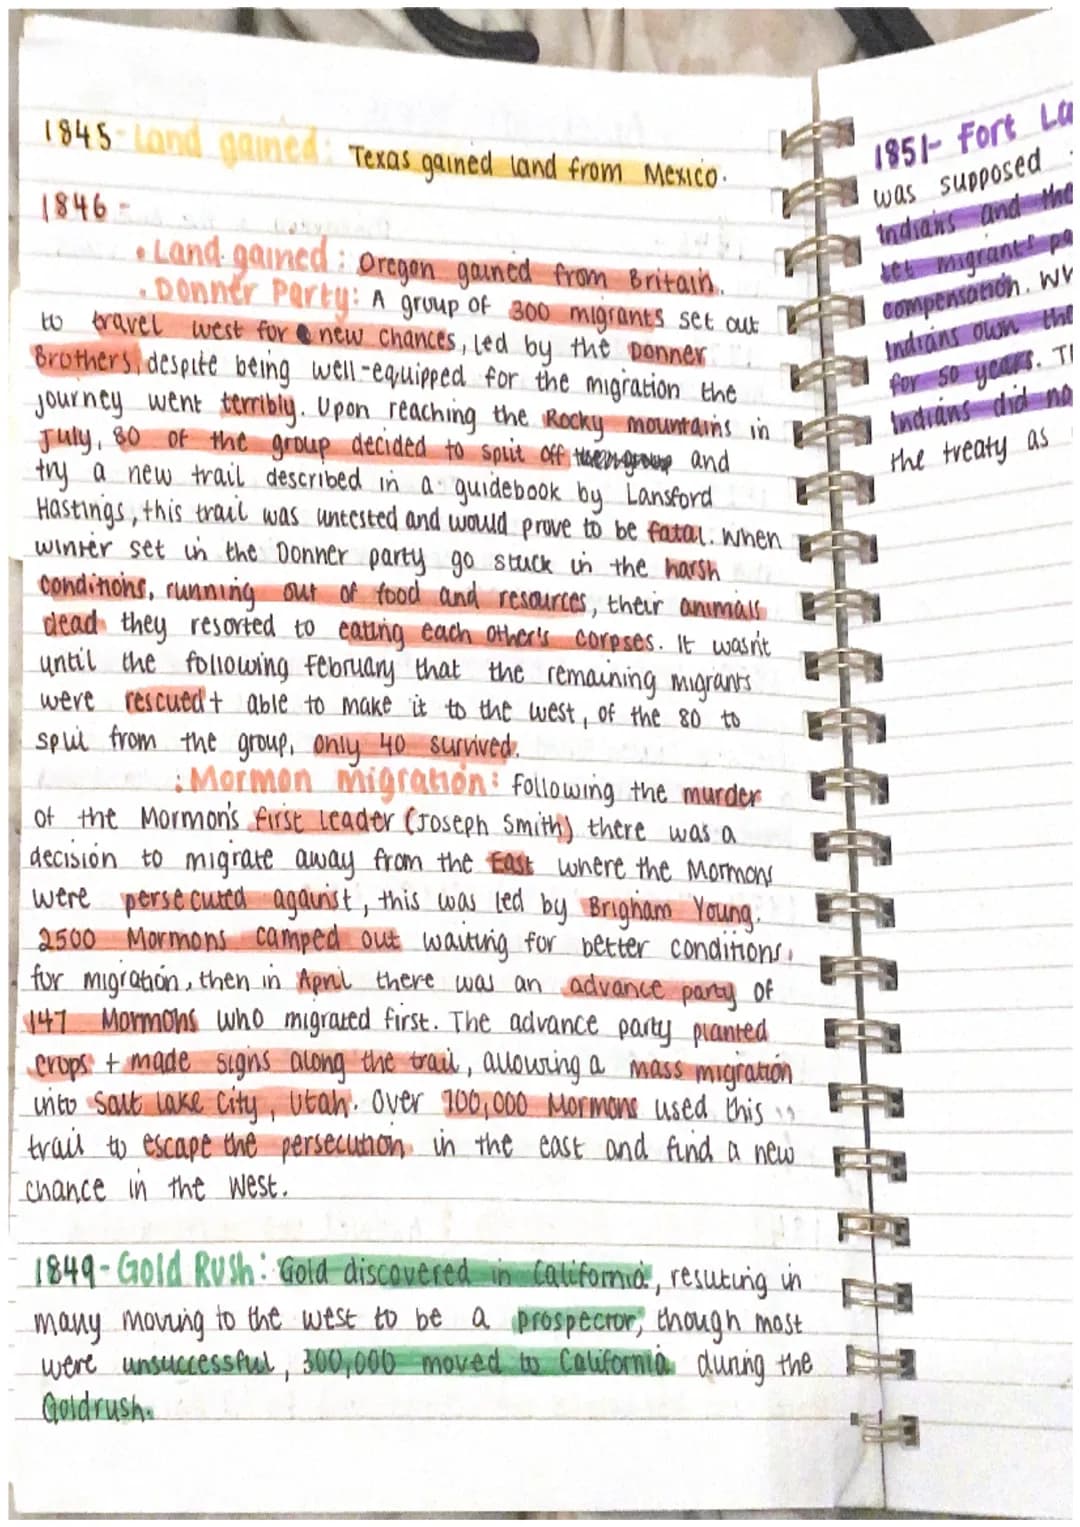 1845- Land gained: Texas gained land from Mexico.
1846 -
• Land gained: Oregon gained from Britain.
• Donner Party: A group of 300 migrants set out
to travel west for new chances, led by the Donner
Brothers, despite being well-equipped for the migration the
journey went terribly. Upon reaching the Rocky mountains in
July, 80 of the group decided to split off and
try a new trail described in a guidebook by Lansford
Hastings, this trail was untested and would prove to be fatal. When
winter set in the Donner party go stuck in the harsh
conditions, running out of food and resources, their animals
dead they resorted to eating each other's corpses. It wasn't
until the following February that the remaining migrants
were rescued + able to make it to the west, of the 80 to
split from the group, only 40 survived.
: Mormon migration: Following the murder
of the Mormon's first leader (Joseph Smith) there was a
decision to migrate away from the East where the Mormons
were persecuted against, this was led by Brigham Young.
2500 Mormons camped out waiting for better conditions
for migration, then in April there was an advance party of
147 Mormons who migrated first. The advance party planted
crops + made signs along the trail, allowing a mass migration
into Salt Lake City, Utah. Over 700,000 Mormons used this
trail to escape the persecution in the east and find a new
chance in the West.
1849- Gold Rush: Gold discovered in California, resulting in
many moving to the west to be a prospector, though most
were unsuccessful, 300,000 moved to California during the
Goldrush.
1851- Fort La
was supposed
Indians and the
let migrants pa
compensation. Wh
Indians own the
for 50 years. Th
Indians did no
the treaty as